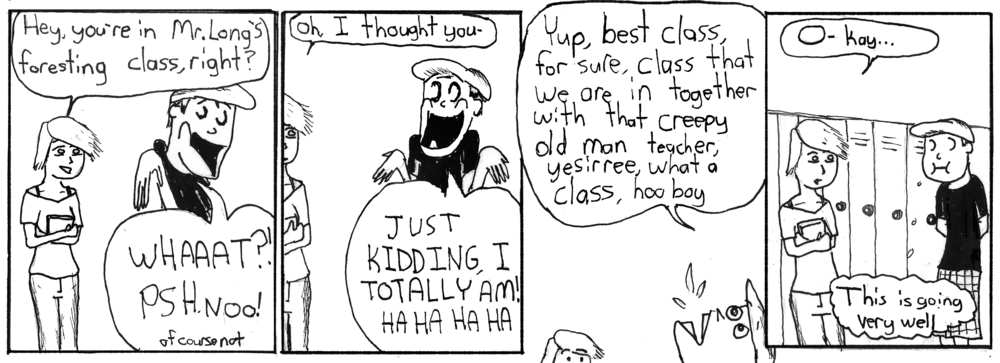 Hey, you're in Mr. Long's
foresting class, right?
WHAAAT?!
PSH. Noo!
of course not
Oh, I thought you-
JUST
KIDDING, I
TOTALLY AM!
HA HA HA HA
Yup, best class,
for sure, class that
we are in together
with that creepy
old man teacher,
yesirree, what a
class, hoo boy
O-kay...
This is going
very well